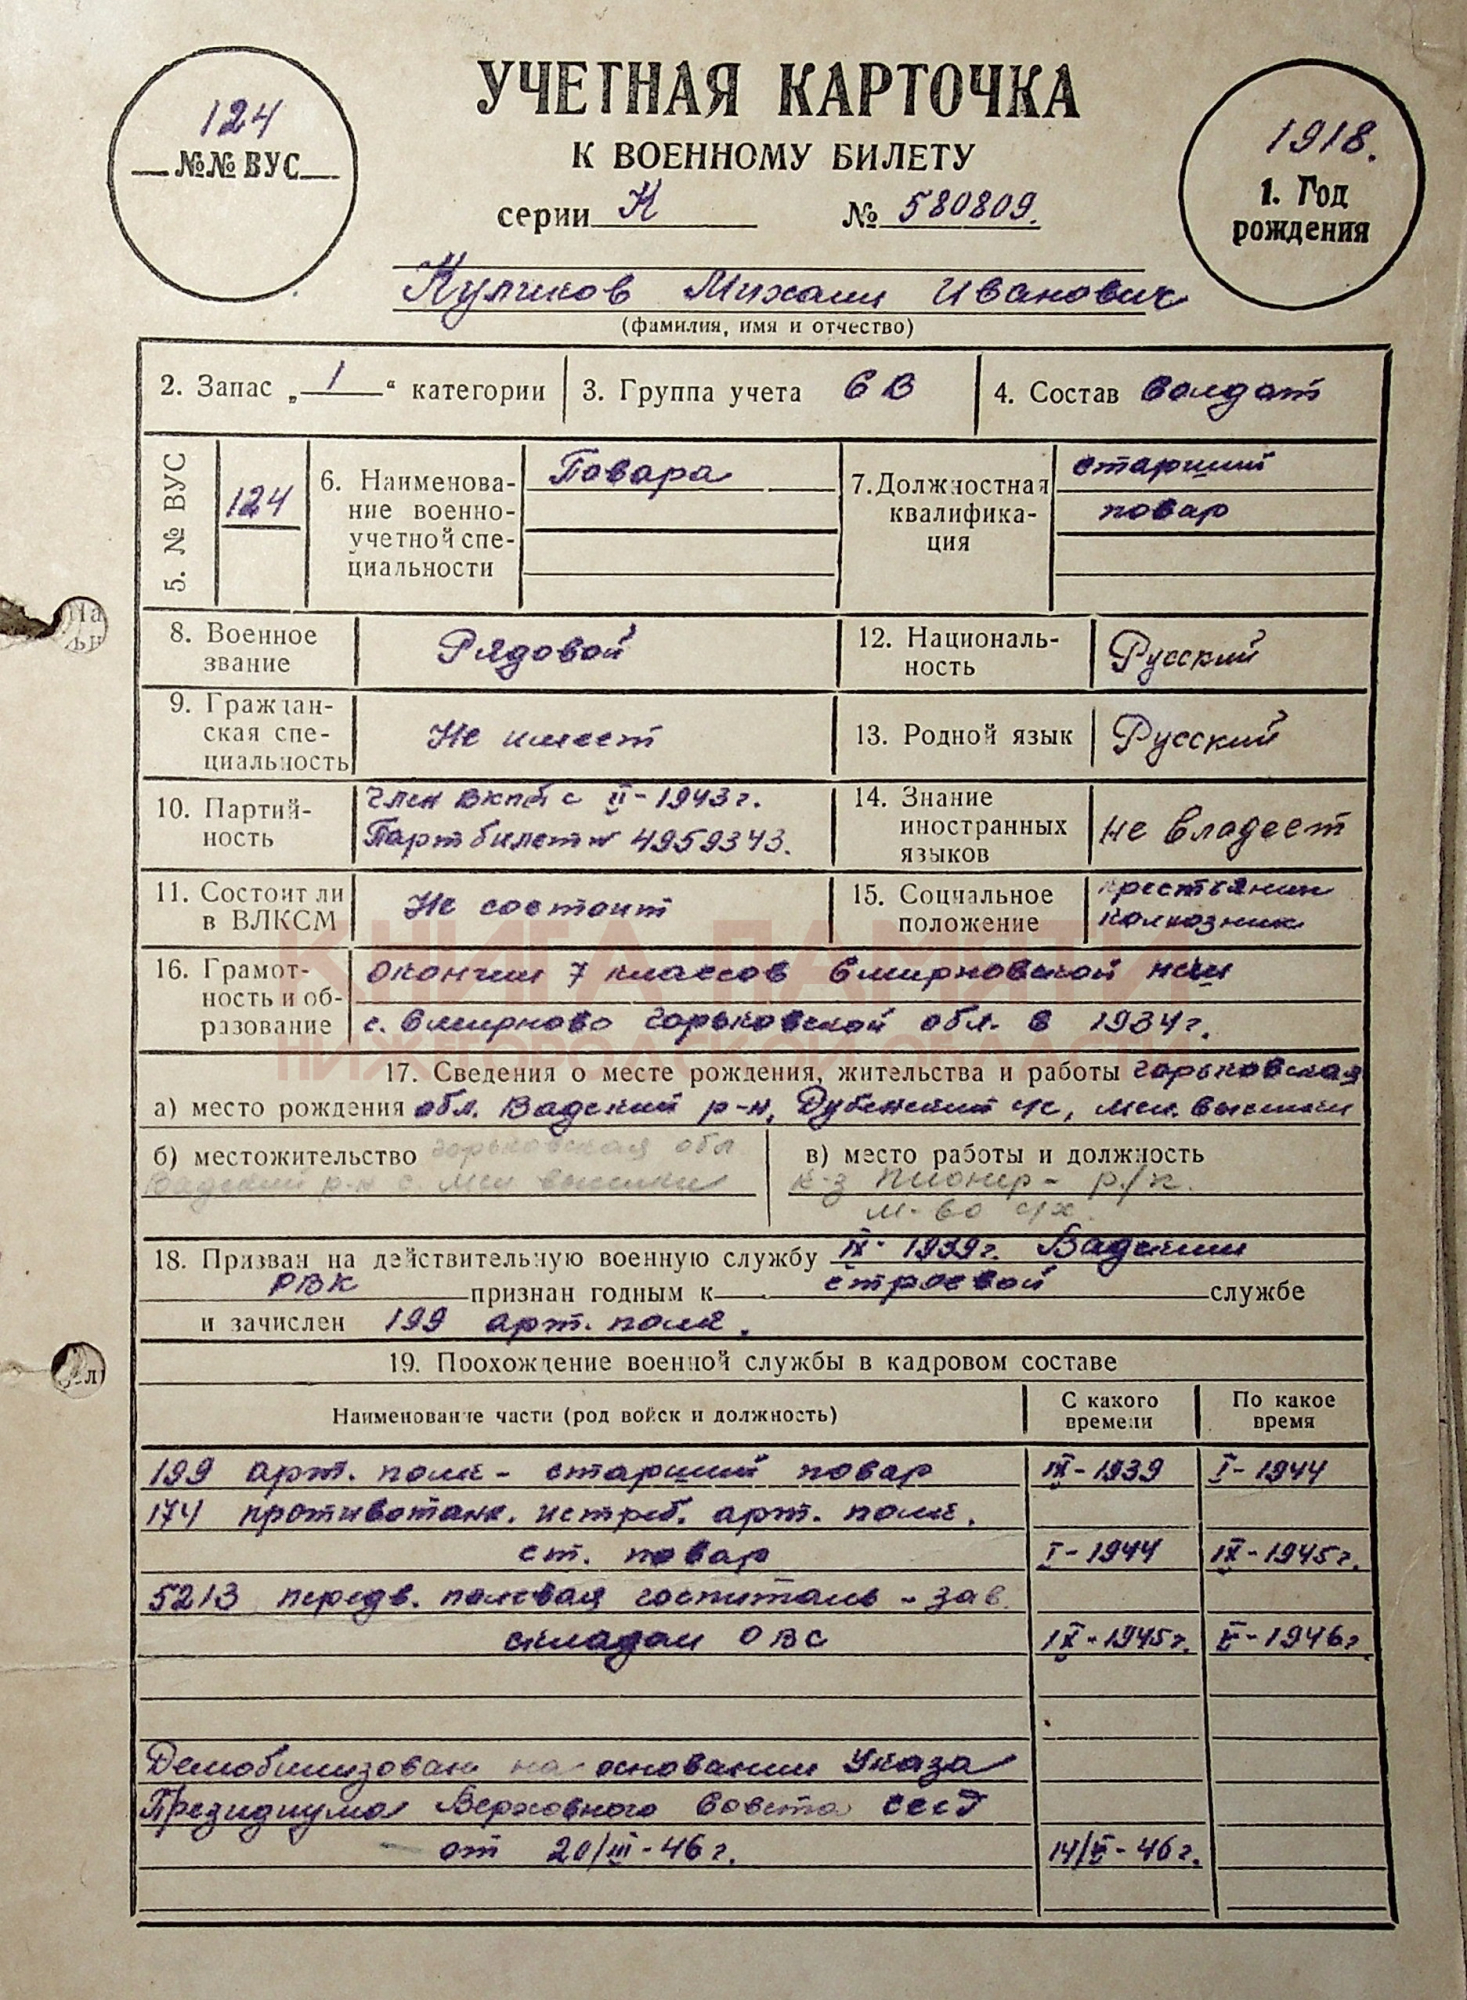 УЧЕТНАЯ КАРТОЧКА
К ВОЕННОМУ БИЛЕТУ
серии К № 580809.
124
№№ ВУС
1918.
1. Год
рождения
Куликов Михаил Иванович
(фамилия, имя и отчество)
2. Запас „1“ категории 3. Группа учета СВ 4. Состав Солдат
5. № ВУС 124
6. Наименова-
ние военно-
учетной спе-
циальности
Повара
7. Должностная
квалифика-
ция
старший
повар
8. Военное
звание
Рядовой
12. Националь-
ность
Русский
9. Граждан-
ская спе-
циальность
Не имеет
13. Родной язык Русский
10. Партий-
ность
Член ВКПб с II-1943г.
Партбилет № 4959343.
14. Знание
иностранных
языков
Не владеет
11. Состоит ли
в ВЛКСМ
Не состоит
15. Социальное
положение
крестьянин
колхозник
16. Грамот-
ность и об-
разование
окончил 7 классов Смирновской нсш
с. Смирново Горьковской обл. в 1934г.
17. Сведения о месте рождения, жительства и работы Горьковская
а) место рождения обл. Вадский р-н, Дубенский с/с,
б) местожительство Горьковская обл
Вадский р-н с.
в) место работы и должность
к-з Пионер - р/к.
м-во с/х.
18. Призван на действительную военную службу IX-1939г. Вадским
РВК признан годным к строевой службе
и зачислен 199 арт. полк.
19. Прохождение военной службы в кадровом составе
Наименование части (род войск и должность)
С какого
времени
По какое
время
199 арт. полк - старший повар IX-1939 I-1944
174 противотанк. истреб. арт. полк.
ст. повар I-1944 IX-1945г.
5213 передв. полевая госпиталь - зав.
складом ОВС IX-1945г. V-1946г.
Демобилизован на основании Указа
Президиума Верховного Совета СССР
от 20/III-46г. 14/V-46г.
КНИГА ПАМЯТИ
НИЖЕГОРОДСКОЙ ОБЛАСТИ